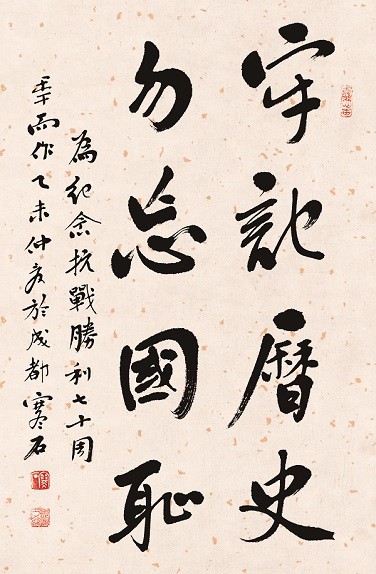 牢記曆史
勿忘國恥
為紀念抗戰勝利七十周
年而作乙未仲夏於成都寒石